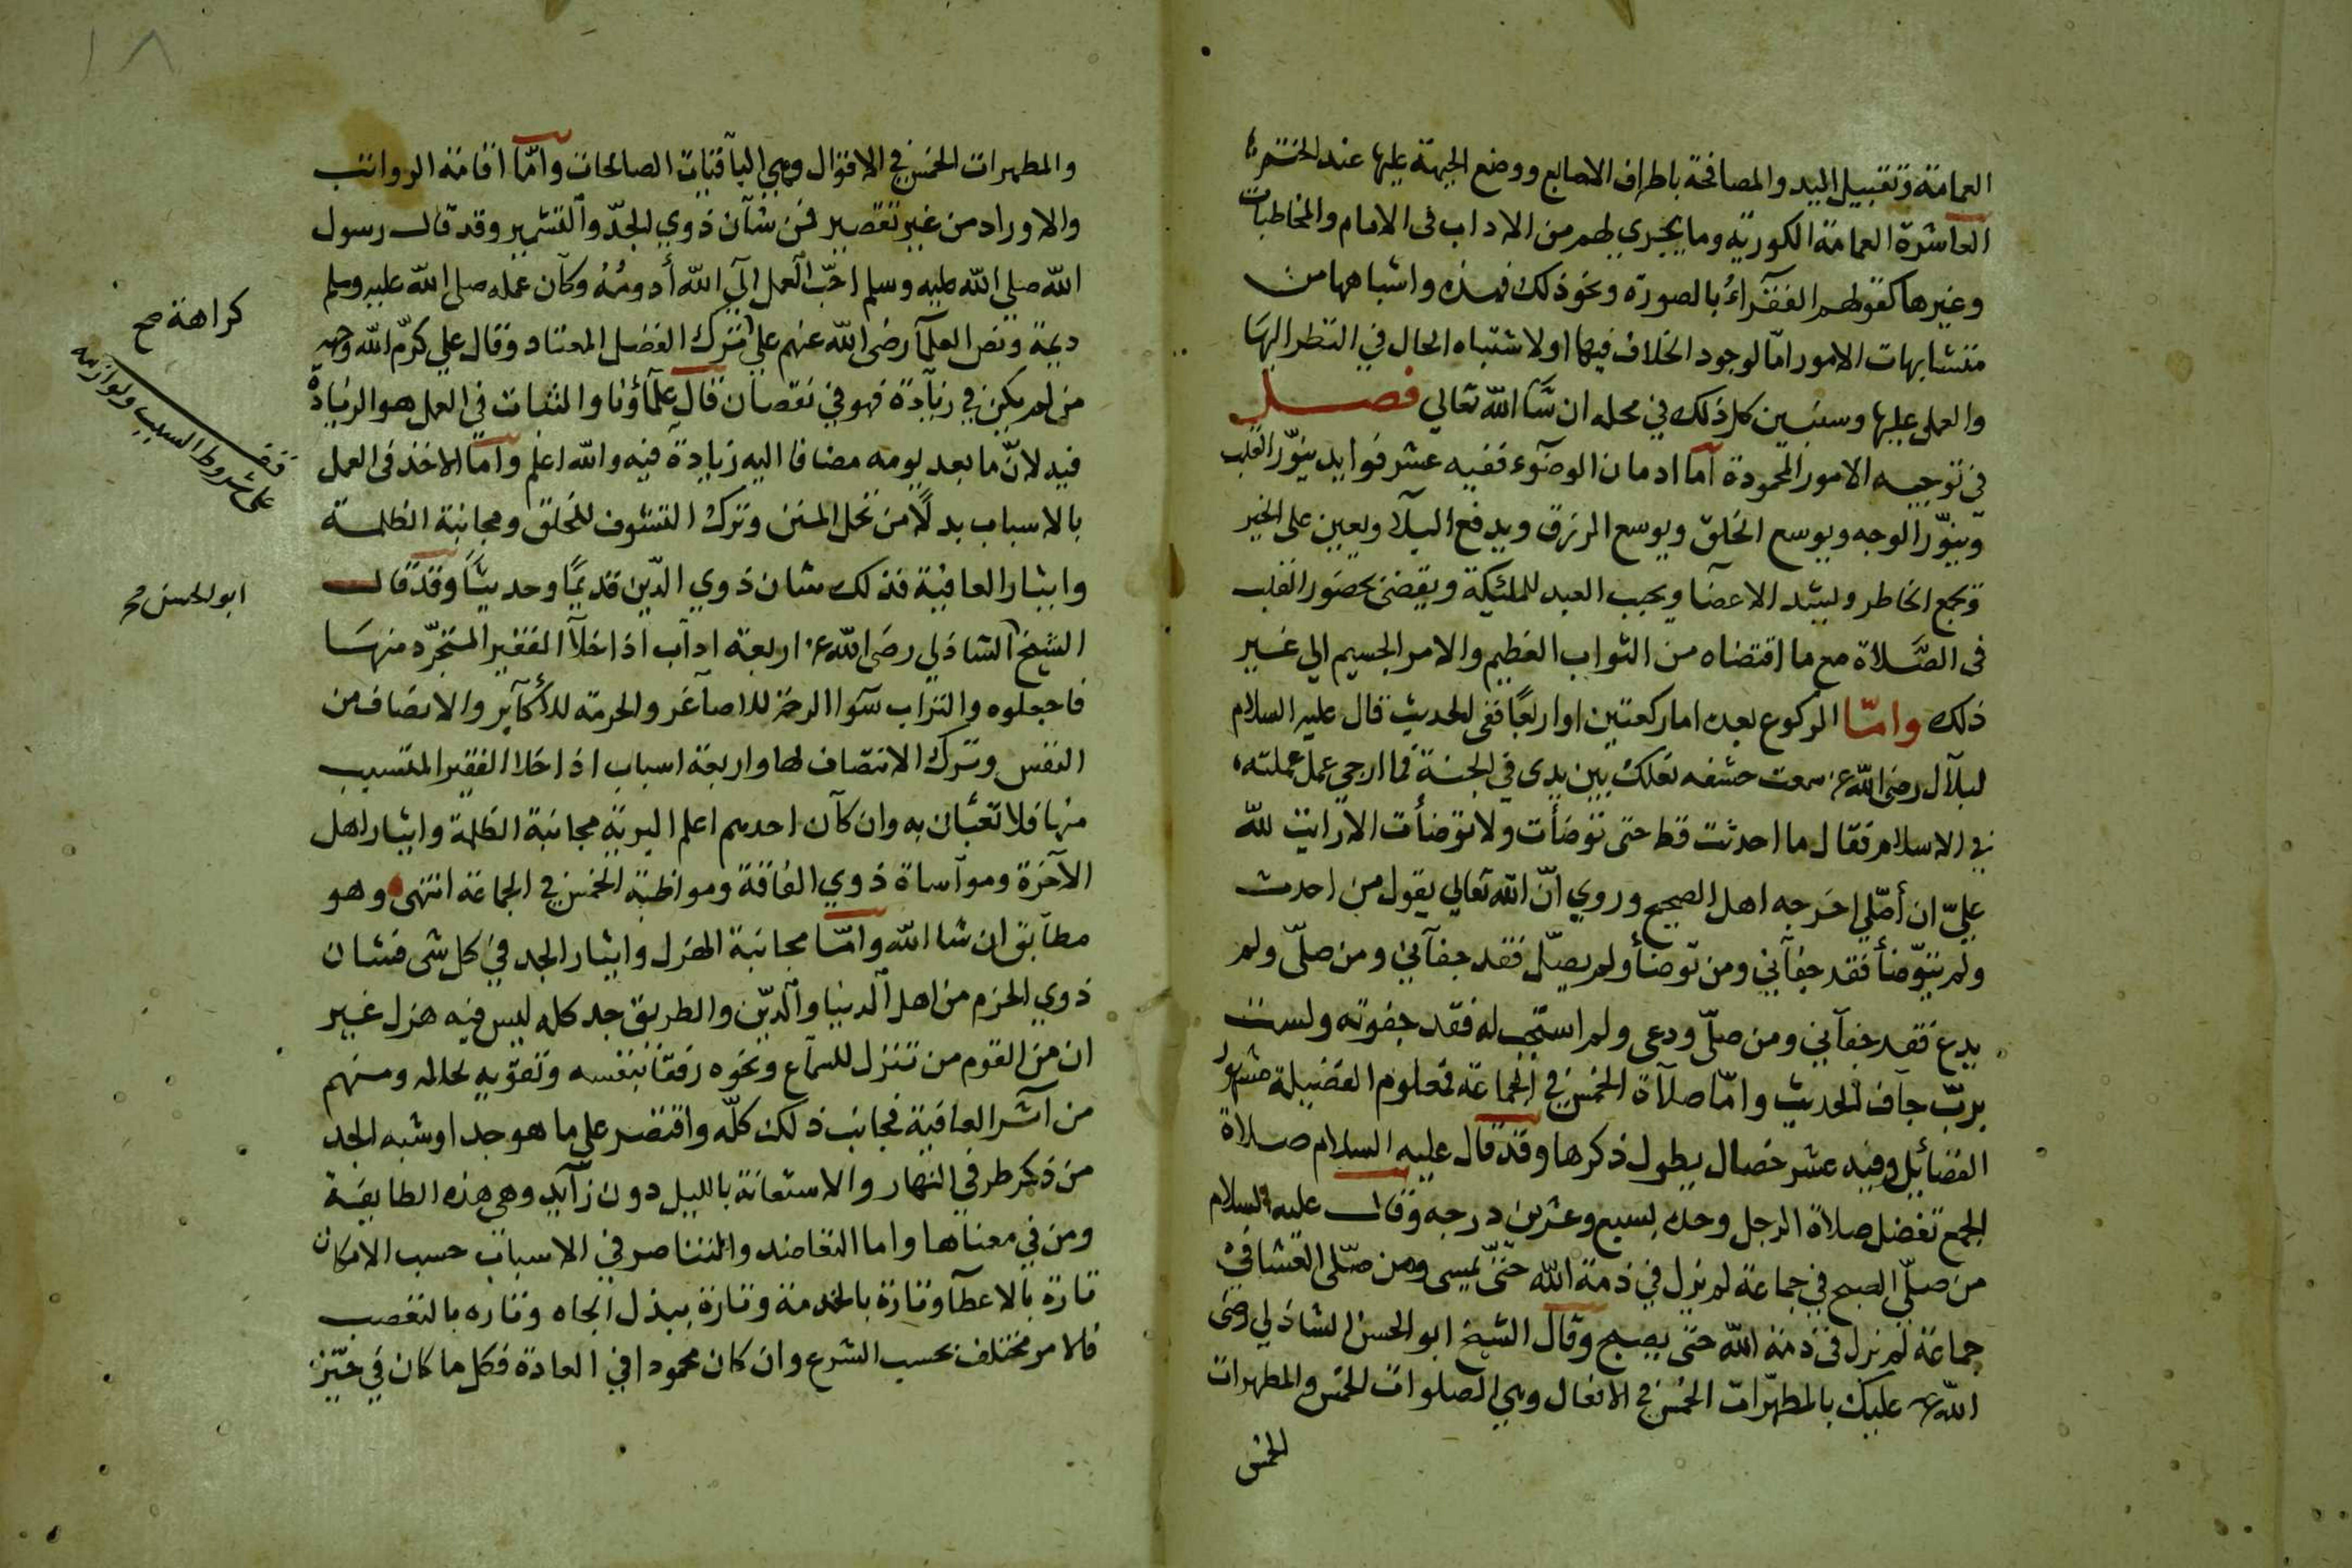 العمامة وتقبيل اليد والمصافحة باطراف الاصابع ووضع الجبهة عليها عند الختم
العاشرة العمامة الكورية وما يجري لهم من الاداب في الامام والمخاطبات
وغيرها كقولهم الفقرآء بالصورة ونحو ذلك فهذه واشباهها من
متشابهات الامور امّا لوجود الخلاف فيها او لاشتباه الحال في النظر اليها
والعمل عليها وسنبين كل ذلك في محله ان شا الله تعالي فصل
في توجيه الامور المحمودة اما ادمان الوضوء ففيه عشر فوايد ينوّر القلب
وينوّر الوجه ويوسع الخلق ويوسع الرزق ويدفع البلآ ويعين على الخير
ويجمع الخاطر ويشد الاعضا ويحبب العبد للملئيكة ويقضي بحضور القلب
في الصّلاة مع ما اقتضاه من الثواب العظيم والامر الجسيم الي غير
ذلك وامّا الركوع بعده اما ركعتين او اربعًا ففي الحديث قال عليه السلام
لبلآل رضي الله عنه سمعت خشفه نعلك بين يدي في الجنة فما ارجي عمل عملته
في الاسلام فقال ما احدثت قط حتى توضأت ولا توضأت الا رايت لله
عليّ ان أصّلي اخرجه اهل الصحيح وروي انّ الله تعالي يقول من احدث
ولم يتوّضأ فقد جفآني ومن توضأ ولم يصّل فقد جفآني ومن صلّى ولم
يدع فقد جفآني ومن صلّى ودعى ولم استجب له فقد جفوته ولست
بربّ جآف الحديث وامّا صلآة الخمس في الجماعة فمعلوم الفضيلة مشهور
الفضائل وفيه عشر خصال يطول ذكرها وقد قال عليه السلام صلاة
الجمع تفضل صلاة الرجل وحده بسبع وعشرين درجه وقال عليه السلام
من صلّى الصبح في جماعة لم يزل في ذمة الله حتّى يمسى ومن صّلى العشا في
جماعة لم يزل في ذمة الله حتى يصبح وقال الشيخ ابو الحسن الشاذلي رضي
الله عنه عليك بالمطهّرات الخمس في الافعال وهي الصلوات الخمس والمطهرات
الخمس
والمطهرات الخمس في الاقوال وهي الباقيات الصالحات وامّا اقامة الرواتب
والاوراد من غير تقصير فمن شآن ذوي الجدّ والتشمير وقد قال رسول
الله صلي الله عليه وسلم احّب العمل الي الله أدومُهُ وكآن عمله صلى الله عليه وسلم
ديمة ونص العلمآ رضي الله عنهم علي ترك الفضل المعتاد وقال علي كرّم الله وجهه
من لم يكن في زيآدة فهو في نقصان قال علمآؤنا والثبات في العمل هو الزيادة
فيه لانّ ما بعد يومه مضافا اليه زيادة فيه والله اعلم وامّا الاخذ في العمل
بالاسباب بدلًا من تحمل المنن وترك التشوف للخلق ومجانبة الظلمة
وايثار العافية فذلك شان ذوي الدّين قديمًا وحديثًا وقد قال
الشيخ الشاذلي رضي الله عنه اربعة اداب اذا خلآ الفقير المتجرّد منها
فاجعلوه والتراب سوآ الرحمة للاصآغر والحرمة للأكآبر والانصاف من
النفس وترك الانتصاف لها واربعة اسباب اذا خلا الفقير المتسبب
منها فلا تعبُان به وان كآن احدهم اعلم البرية مجانبة الظلمة وايثار اهل
الآخرة وموآساة ذوي الفاقة ومواظبة الخمس في الجماعة انتهى وهو
مطآبق ان شا الله وامّا مجانبة الهزل وايثار الجد في كل شى فشان
ذوي الحزم من اهل الدنيا والدّين والطريق جد كله ليس فيه هزل غير
ان من القوم من تنزل للسمآع ونحوه رفقا بنفسه وتقويه لحاله ومنهم
من آثر العافية فجانب ذلك كلّه واقتصر على ما هو جد او شبه الجد
من ذكر طرفي النهار والاستعانة بالليل دون زآيد وهي هذه الطايفة
ومن في معناها واما التعاضد والتناصر في الاسباب حسب الامكان
تارة بالاعطآ وتارة بالخدمة وتارة ببذل الجاه وتاره بالتعصب
فالامر مختلف بحسب الشرع وان كان محمودا في العادة فكل ما كان في حيّز
كراهة صح
قف
على شروط السبب ولوازمه
ابو الحسن صح
١٨